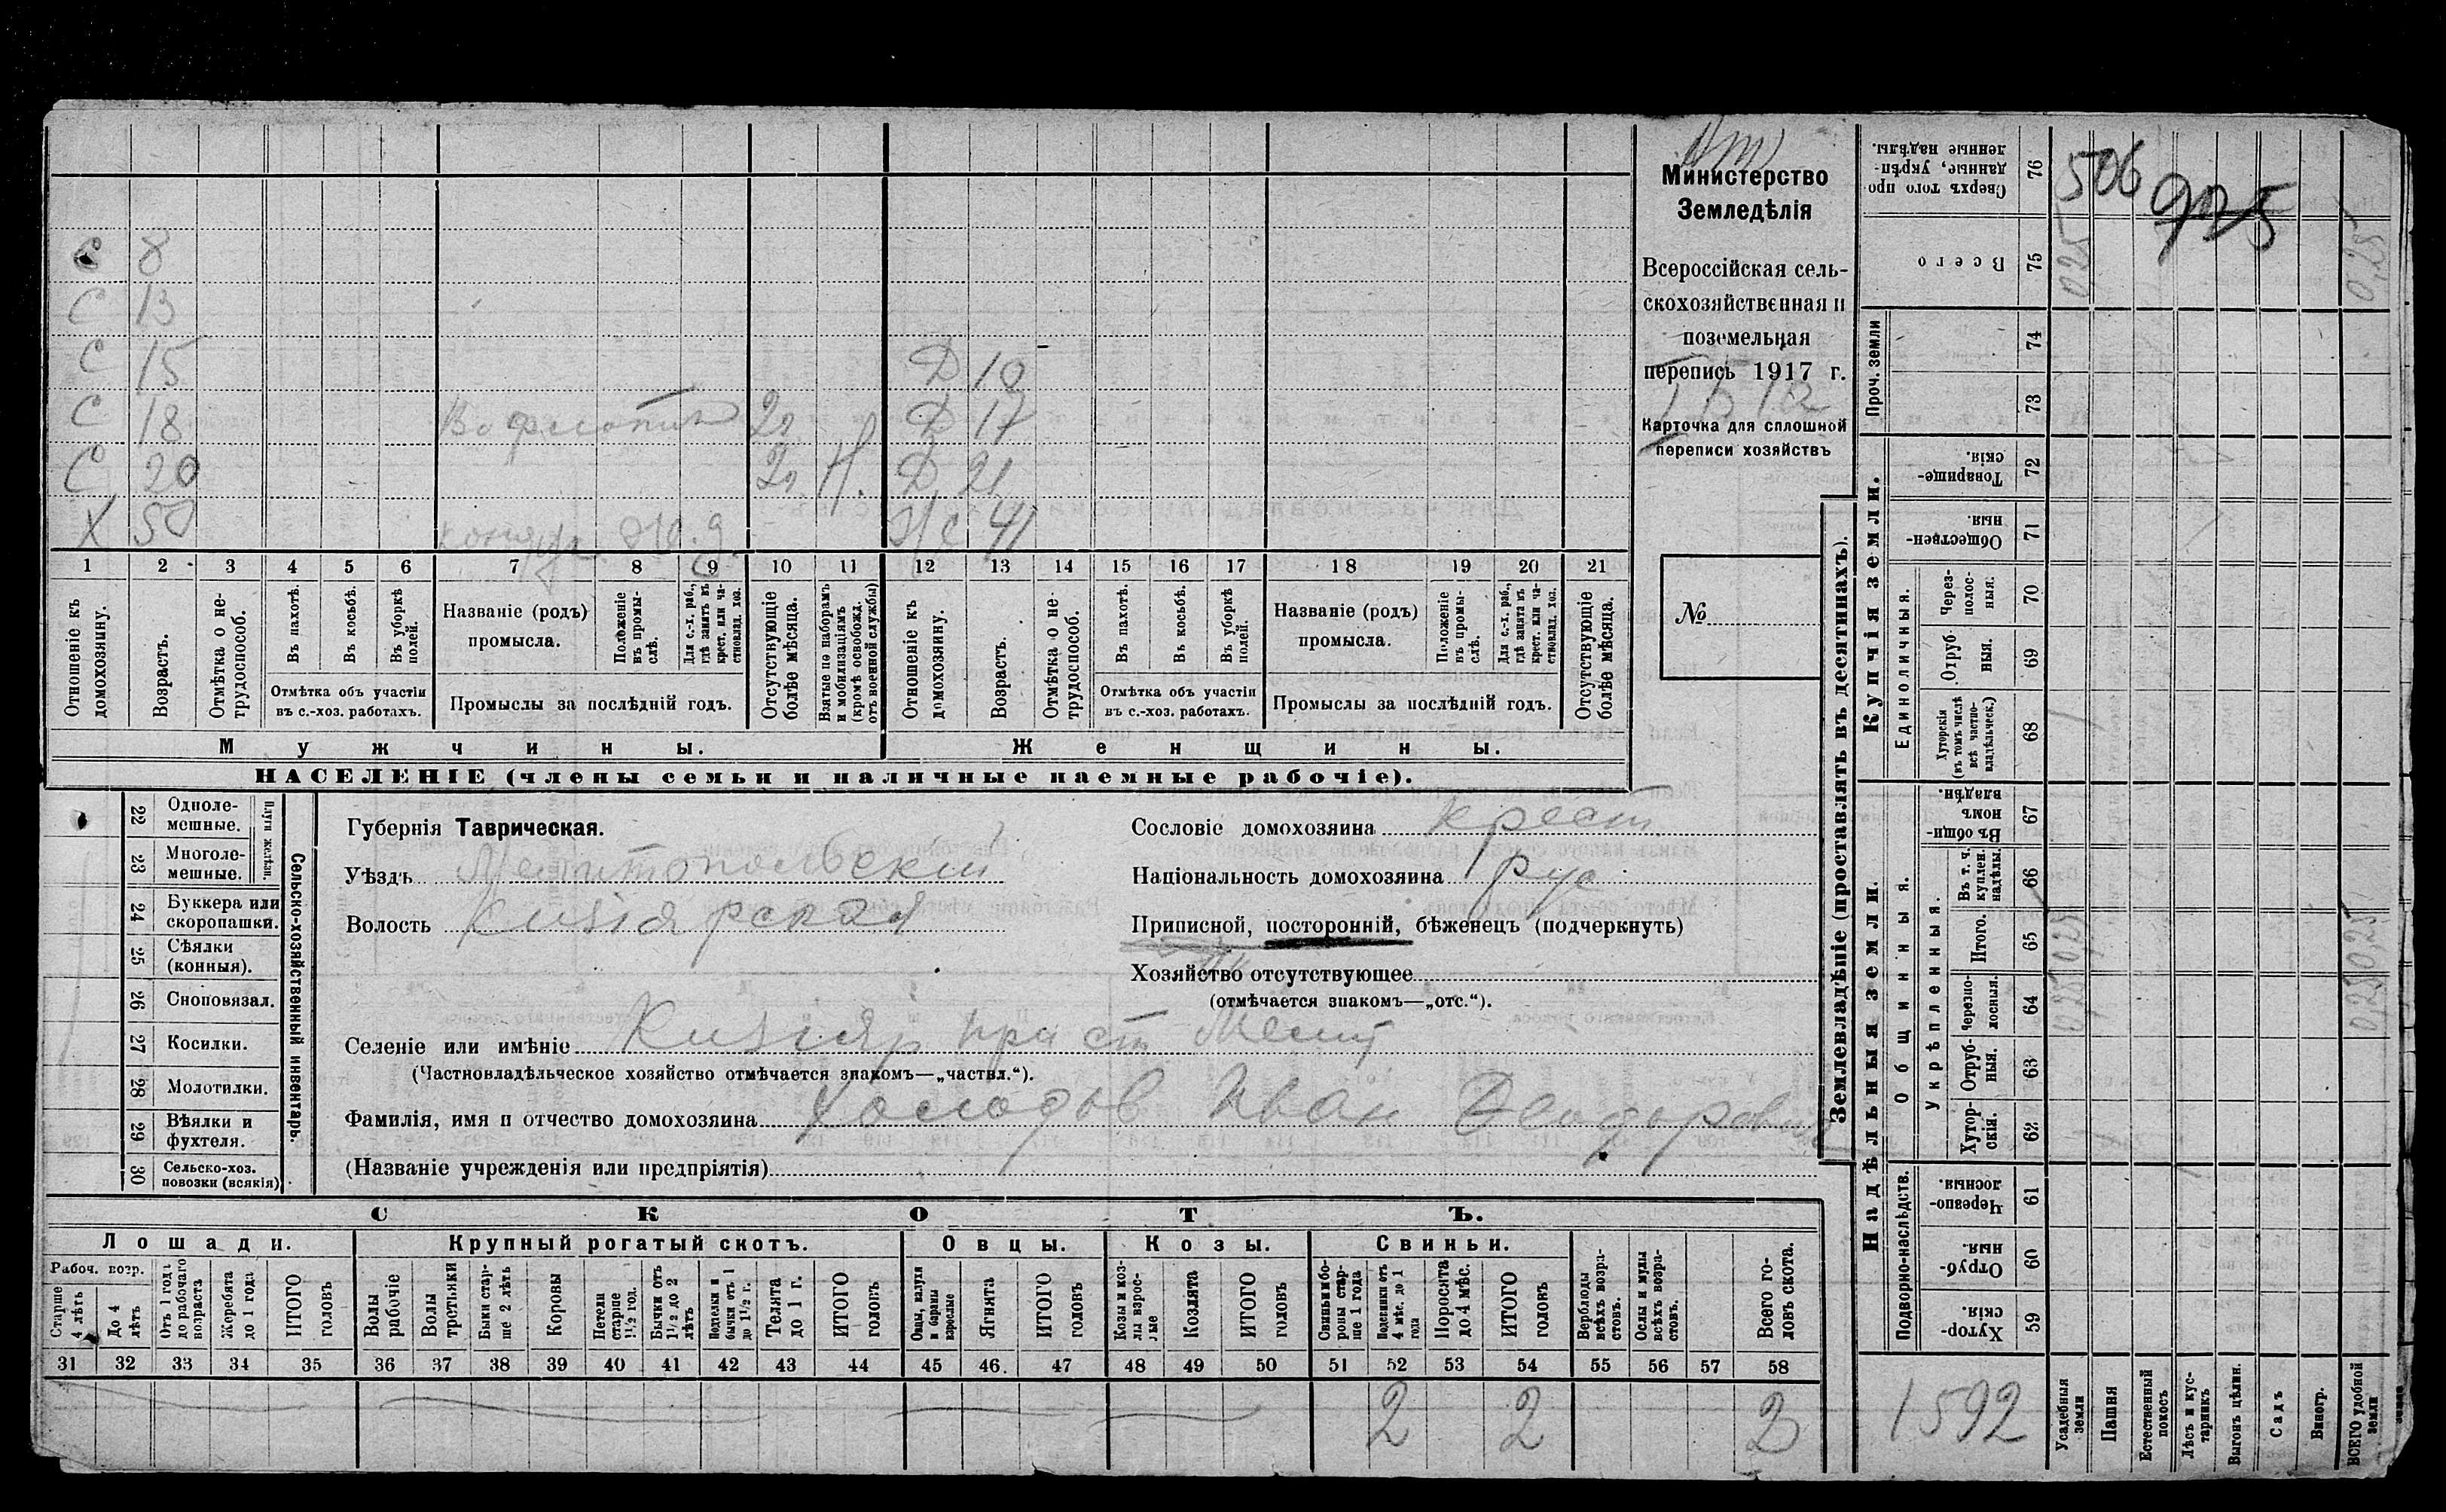 С 8
С 13
С 15 Д 10
С 18 Во флоти 2 г. Д 17
С 20 2 г. Н. Д 21
Х 50 ж.д. Ж 41
1 2 3 4 5 6 7 8 9 10 11 12 13 14 15 16 17 18 19 20 21
Отношеніе къ домохозяину.
Возрастъ.
Отмѣтка о не-трудоспособ.
Въ пахотѣ.
Въ косьбѣ.
Въ уборкѣ полей.
Отмѣтка объ участіи въ с.-хоз. работахъ.
Названіе (родъ) промысла.
Положеніе въ промы-слѣ.
Для с.-х. раб., гдѣ занятъ въ крест. или ча-стновлад. хоз.
Промыслы за послѣдній годъ.
Отсутствующіе болѣе мѣсяца.
Взятые по наборамъ и мобилизаціямъ (кромѣ освобожд. отъ военной службы)
Отношеніе къ домохозяину.
Возрастъ.
Отмѣтка о не-трудоспособ.
Въ пахотѣ.
Въ косьбѣ.
Въ уборкѣ полей.
Отмѣтка объ участіи въ с.-хоз. работахъ.
Названіе (родъ) промысла.
Положеніе въ промы-слѣ.
Для с.-х. раб., гдѣ занята въ крест. или ча-стновлад. хоз.
Промыслы за послѣдній годъ.
Отсутствующіе болѣе мѣсяца.
Мужчины. Женщины.
НАСЕЛЕНІЕ (члены семьи и наличные наемные рабочіе).
Министерство
Земледѣлія
Всероссійская сель-
скохозяйственная и
поземельная
перепись 1917 г.
Карточка для сплошной
переписи хозяйствъ
№
22 Одноле-мешные.
23 Многоле-мешные.
Плуги желѣзн.
24 Буккера или скоропашки.
25 Сѣялки (конныя).
26 Сноповязал.
27 Косилки.
28 Молотилки.
29 Вѣялки и фухтеля.
30 Сельско-хоз. повозки (всякія)
Сельско-хозяйственный инвентарь.
Губернія Таврическая.
Уѣздъ Мелитопольский
Волость Кизіярская
Сословіе домохозяина крест
Національность домохозяина рус
Приписной, посторонній, бѣженецъ (подчеркнуть)
Хозяйство отсутствующее
(отмѣчается знакомъ—„отс.“).
Селеніе или имѣніе Кизіяр при ст Мелит
(Частновладѣльческое хозяйство отмѣчается знакомъ—„частвл.“).
Фамилія, имя и отчество домохозяина Холодов Иван Феодорович
(Названіе учрежденія или предпріятія)
СКОТЪ.
Лошади. Крупный рогатый скотъ. Овцы. Козы. Свиньи.
Рабоч. возр.
Старше 4 лѣтъ
До 4 лѣтъ
Отъ 1 года до рабочаго возраста
Жеребята до 1 года
ИТОГО головъ
Волы рабочіе
Волы третьяки
Быки стар-ше 2 лѣтъ
Коровы
Нетели старше 1½ год.
Бычки отъ 1½ до 2 лѣтъ
Подѣлки и бычки отъ 1 до 1½ г.
Телята до 1 г.
ИТОГО головъ
Овцы, валухи и бараны взрослые
Ягнята
ИТОГО головъ
Козы и коз-лы взрос-лые
Козлята
ИТОГО головъ
Свиньи и бо-ровы стар-ше 1 года
Подсвинки отъ 4 мѣс. до 1 года
Поросята до 4 мѣс.
ИТОГО головъ
Верблюды всѣхъ возра-стовъ.
Ослы и мулы всѣхъ возра-стовъ.
Всего го-ловъ скота.
31 32 33 34 35 36 37 38 39 40 41 42 43 44 45 46. 47 48 49 50 51 52 53 54 55 56 57 58
2 2 2
Землевладѣніе (проставлять въ десятинахъ).
Купчія земли.
Надѣльныя земли.
76 Сверхъ того про-данные, укрѣп-ленные надѣлы.
75 Всего
Проч. земли
74
73
72 Товарище-скія.
71 Обществен-ныя.
Единоличныя.
70 Через-полос-ныя.
69 Отруб-ныя.
68 Хуторскія (въ томъ числѣ всѣ частно-владѣльческ.)
Общинныя.
67 Въ общи-номъ владѣн.
Укрѣпленныя.
66 Въ т. ч. куплен. надѣлы.
65 Итого.
64 Черезпо-лосныя.
63 Отруб-ныя.
62 Хутор-скія.
Подворно-наслѣдств.
61 Черезпо-лосныя.
60 Отруб-ныя.
59 Хутор-скія.
506 925
0,25 0,25
0,25 0,25
0,25 0,25
1592
Усадебныя земли
Пашня
Естественный покосъ
Лѣсъ и кус-тарникъ
Выгонъ цѣлин.
Садъ
Виногр.
ВСЕГО удобной земли